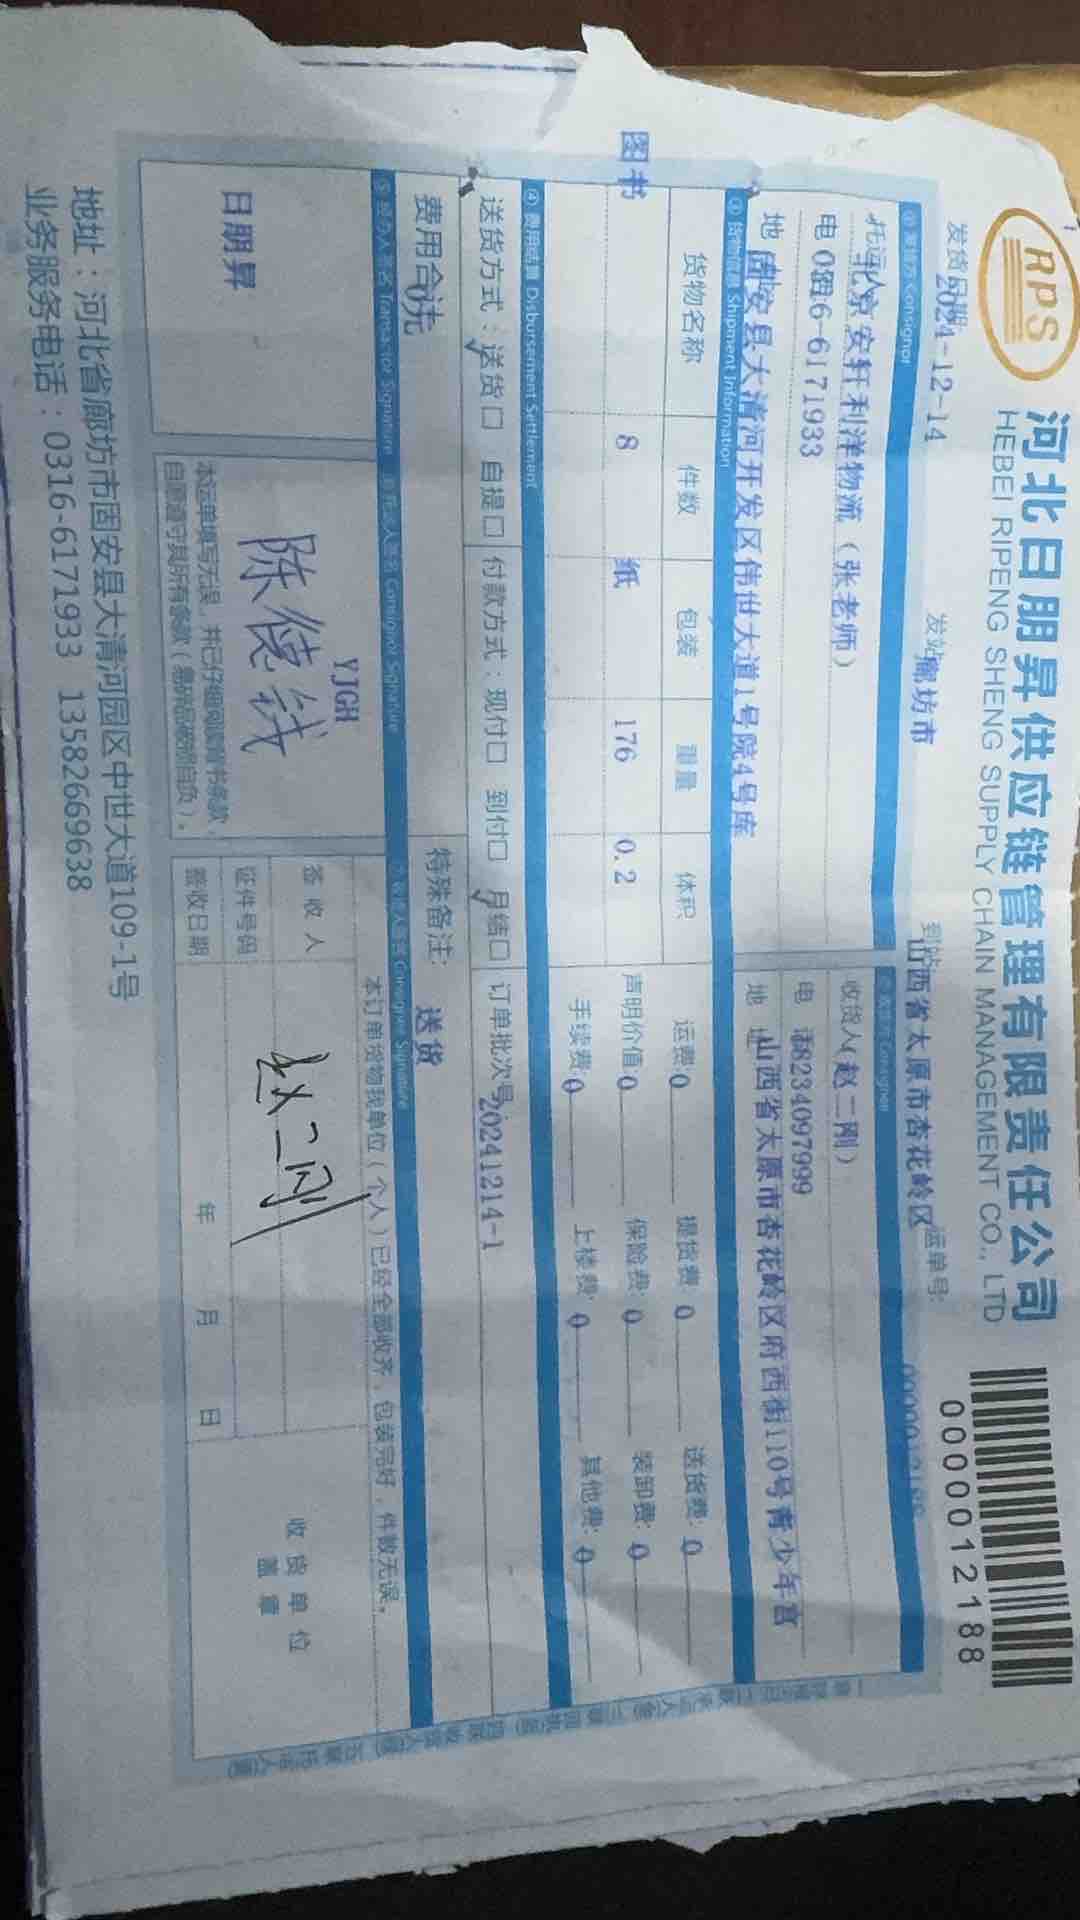 RPS
河北日朋昇供应链管理有限责任公司
HEBEI RIPENG SHENG SUPPLY CHAIN MANAGEMENT CO., LTD
000012188
发货日期:2024-12-14 发站:廊坊市 到站:山西省太原市杏花岭区 运单号: 000012188
① 发货方 Consignor
托运人:北京安轩利洋物流（张老师）
电 话:0316-6171933
地 址:固安县大清河开发区伟世大道1号院4号库
② 收货方 Consignee
收货人(赵二刚)
电 话:18234097999
地 址:山西省太原市杏花岭区府西街110号青少年宫
③ 货物信息 Shipment Information
货物名称 件数 包装 重量 体积
图书 8 纸 176 0.2
运费:0 提货费: 0 送货费: 0
声明价值:0 保险费: 0 装卸费: 0
手续费:0 上楼费: 0 其他费: 0
④ 费用结算 Disbursement Settlement
送货方式：送货口 自提口 付款方式：现付口 到付口 月结口 订单批次号:20241214-1
费用合计: 特殊备注: 送货
⑤ 经办人签名 Transactor Signature
日朋昇
⑥ 托运人签名 Consignor Signature
YJGH
陈德钱
本运单填写无误，并已仔细阅读背书条款，
自愿遵守其所有条款（易碎品破损自负）。
⑦ 收货人签名 Consignee Signature
本订单货物我单位（个人）已经全部收齐，包装完好，件数无误。
签收人 赵二刚
证件号码:
签收日期 年 月 日
收货单位
盖章
地址：河北省廊坊市固安县大清河园区中世大道109-1号
业务服务电话：0316-6171933 13582669638